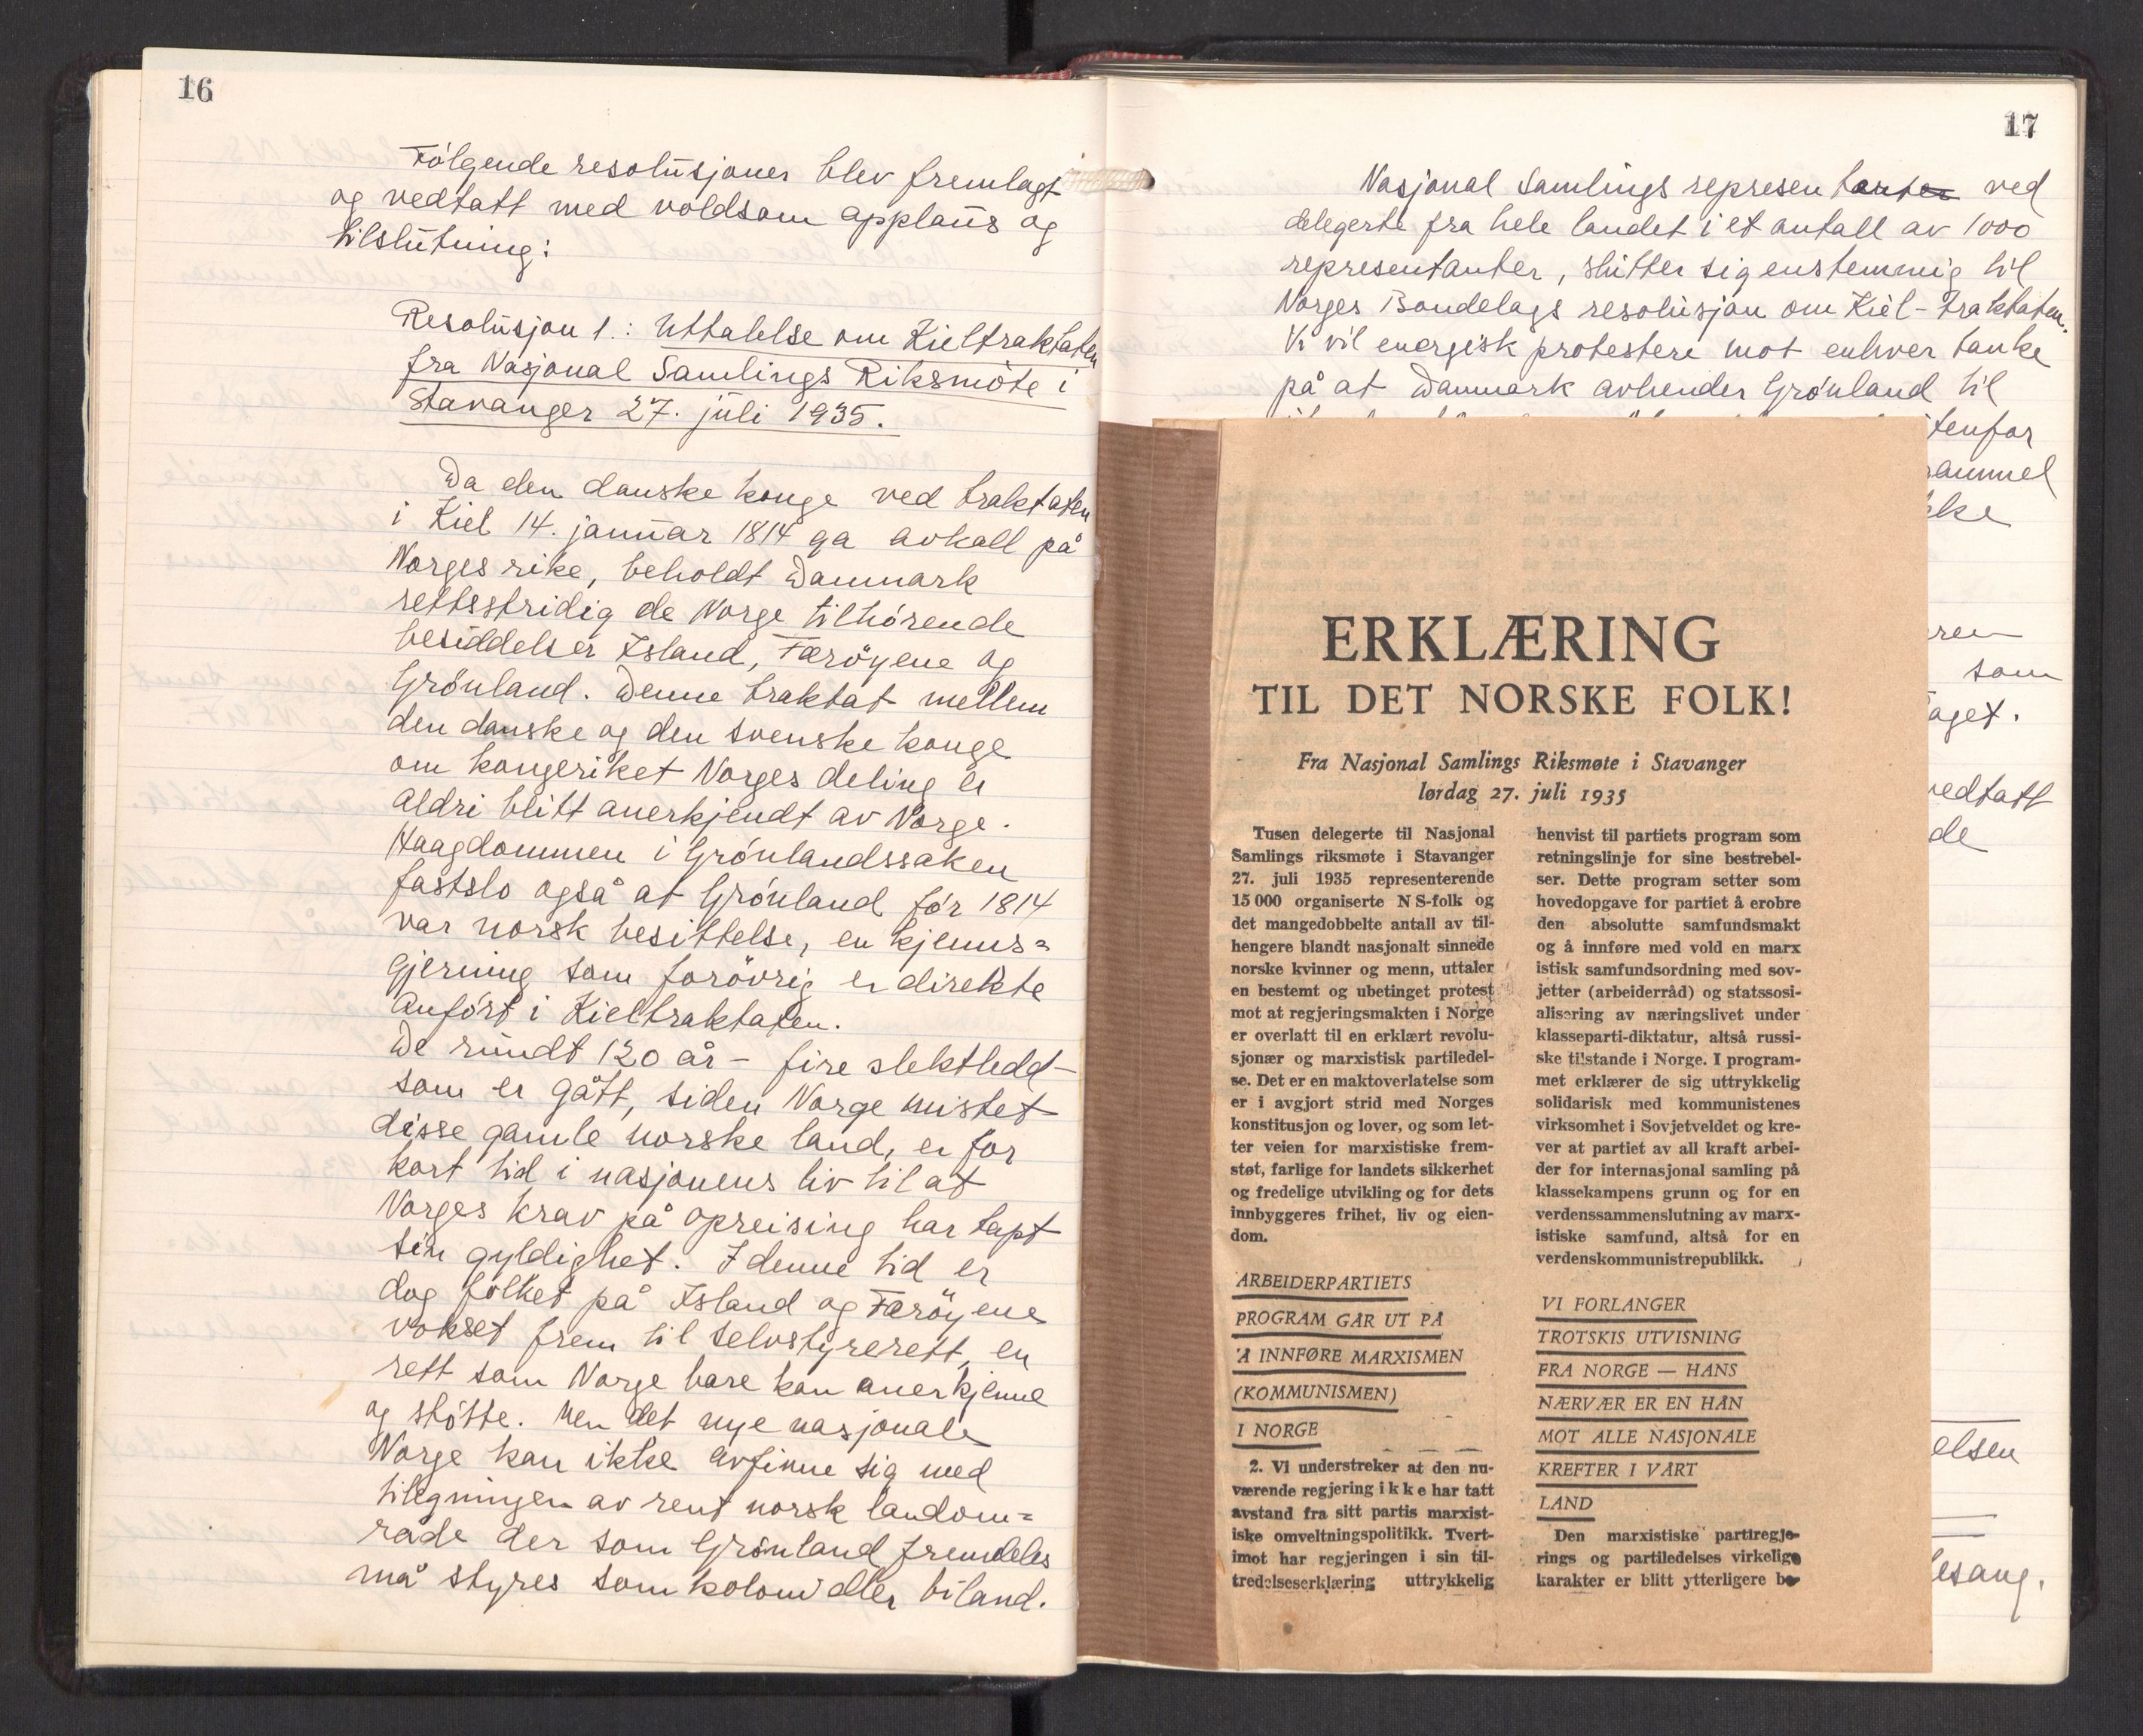 16
Følgende resolusjoner blev fremlagt
og vedtatt med voldsom applaus og
tilslutning:
Resolusjon 1.: Uttalelse om Kieltraktaten
fra Nasjonal Samlings Riksmøte i
Stavanger 27. juli 1935.
Da den danske konge ved traktaten
i Kiel 14. januar 1814 ga avkall på
Norges rike, beholdt Danmark
rettsstridig de Norge tilhørende
besiddelser Island, Færöyene og
Grønland. Denne traktat mellem
den danske og den svenske konge
om kongeriket Norges deling er
aldri blitt anerkjendt av Norge.
Haagdommen i Grønlandssaken
fastslo også at Grønland før 1814
var norsk besittelse, en kjenns=
gjerning som forövrig er direkte
anført i Kieltraktaten.
De rundt 120 år - fire slektledd -
som er gått, siden Norge mistet
disse gamle norske land, er for
kort tid i nasjonens liv til at
Norges krav på opreising har tapt
sin gyldighet. I denne tid er
dog folket på Island og Færöyene
vokset frem til selvstyrerett, en
rett som Norge bare kan anerkjenne
og støtte. Men det nye nasjonale
Norge kan ikke avfinne sig med
tilegningen av rent norsk landom=
råde der som Grønland fremdeles
må styres som koloni eller biland.
17
Nasjonal Samlings representanter ved
delegerte fra hele landet i et antall av 1000
representanter, slutter sig enstemmig til
Norges Bondelags resolusjon om Kiel-Traktaten.
Vi vil energisk protestere mot enhver tanke
på at Danmark avhender Grønland til
tenfor
ammel
kke
ren
som
aget.
vedtatt
de
elsen
lesang.
ERKLÆRING
TIL DET NORSKE FOLK!
Fra Nasjonal Samlings Riksmøte i Stavanger
lørdag 27. juli 1935
Tusen delegerte til Nasjonal
Samlings riksmøte i Stavanger
27. juli 1935 representerende
15 000 organiserte NS-folk og
det mangedobbelte antall av til-
hengere blandt nasjonalt sinnede
norske kvinner og menn, uttaler
en bestemt og ubetinget protest
mot at regjeringsmakten i Norge
er overlatt til en erklært revolu-
sjonær og marxistisk partiledel-
se. Det er en maktoverlatelse som
er i avgjort strid med Norges
konstitusjon og lover, og som let-
ter veien for marxistiske frem-
støt, farlige for landets sikkerhet
og fredelige utvikling og for dets
innbyggeres frihet, liv og eien-
dom.
ARBEIDERPARTIETS
PROGRAM GÅR UT PÅ
Å INNFØRE MARXISMEN
(KOMMUNISMEN)
I NORGE
2. Vi understreker at den nu-
værende regjering ikke har tatt
avstand fra sitt partis marxist-
iske omveltningspolitikk. Tvert-
imot har regjeringen i sin til-
tredelseserklæring uttrykkelig
henvist til partiets program som
retningslinje for sine bestrebel-
ser. Dette program setter som
hovedopgave for partiet å erobre
den absolutte samfundsmakt
og å innføre med vold en marx
istisk samfundsordning med sov-
jetter (arbeiderråd) og statssosi-
alisering av næringslivet under
klasseparti-diktatur, altså russi-
ske tilstande i Norge. I program-
met erklærer de sig uttrykkelig
solidarisk med kommunistenes
virksomhet i Sovjetveldet og kre-
ver at partiet av all kraft arbei-
der for internasjonal samling på
klassekampens grunn og for en
verdenssammenslutning av marx-
istiske samfund, altså for en
verdenskommunistrepublikk.
VI FORLANGER
TROTSKIS UTVISNING
FRA NORGE — HANS
NÆRVÆR ER EN HÅN
MOT ALLE NASJONALE
KREFTER I VÅRT
LAND
Den marxistiske partiregje-
rings og partiledelses virkelige
karakter er blitt ytterligere be-